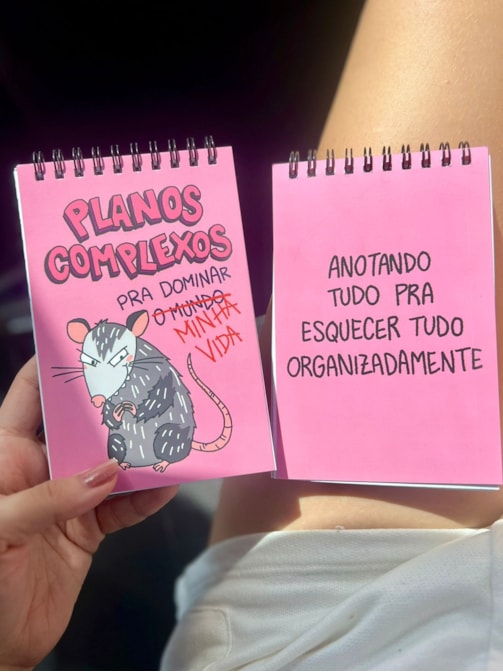 PLANOS
COMPLEXOS
PRA DOMINAR
O MUNDO
MINHA
VIDA
ANOTANDO
TUDO PRA
ESQUECER TUDO
ORGANIZADAMENTE